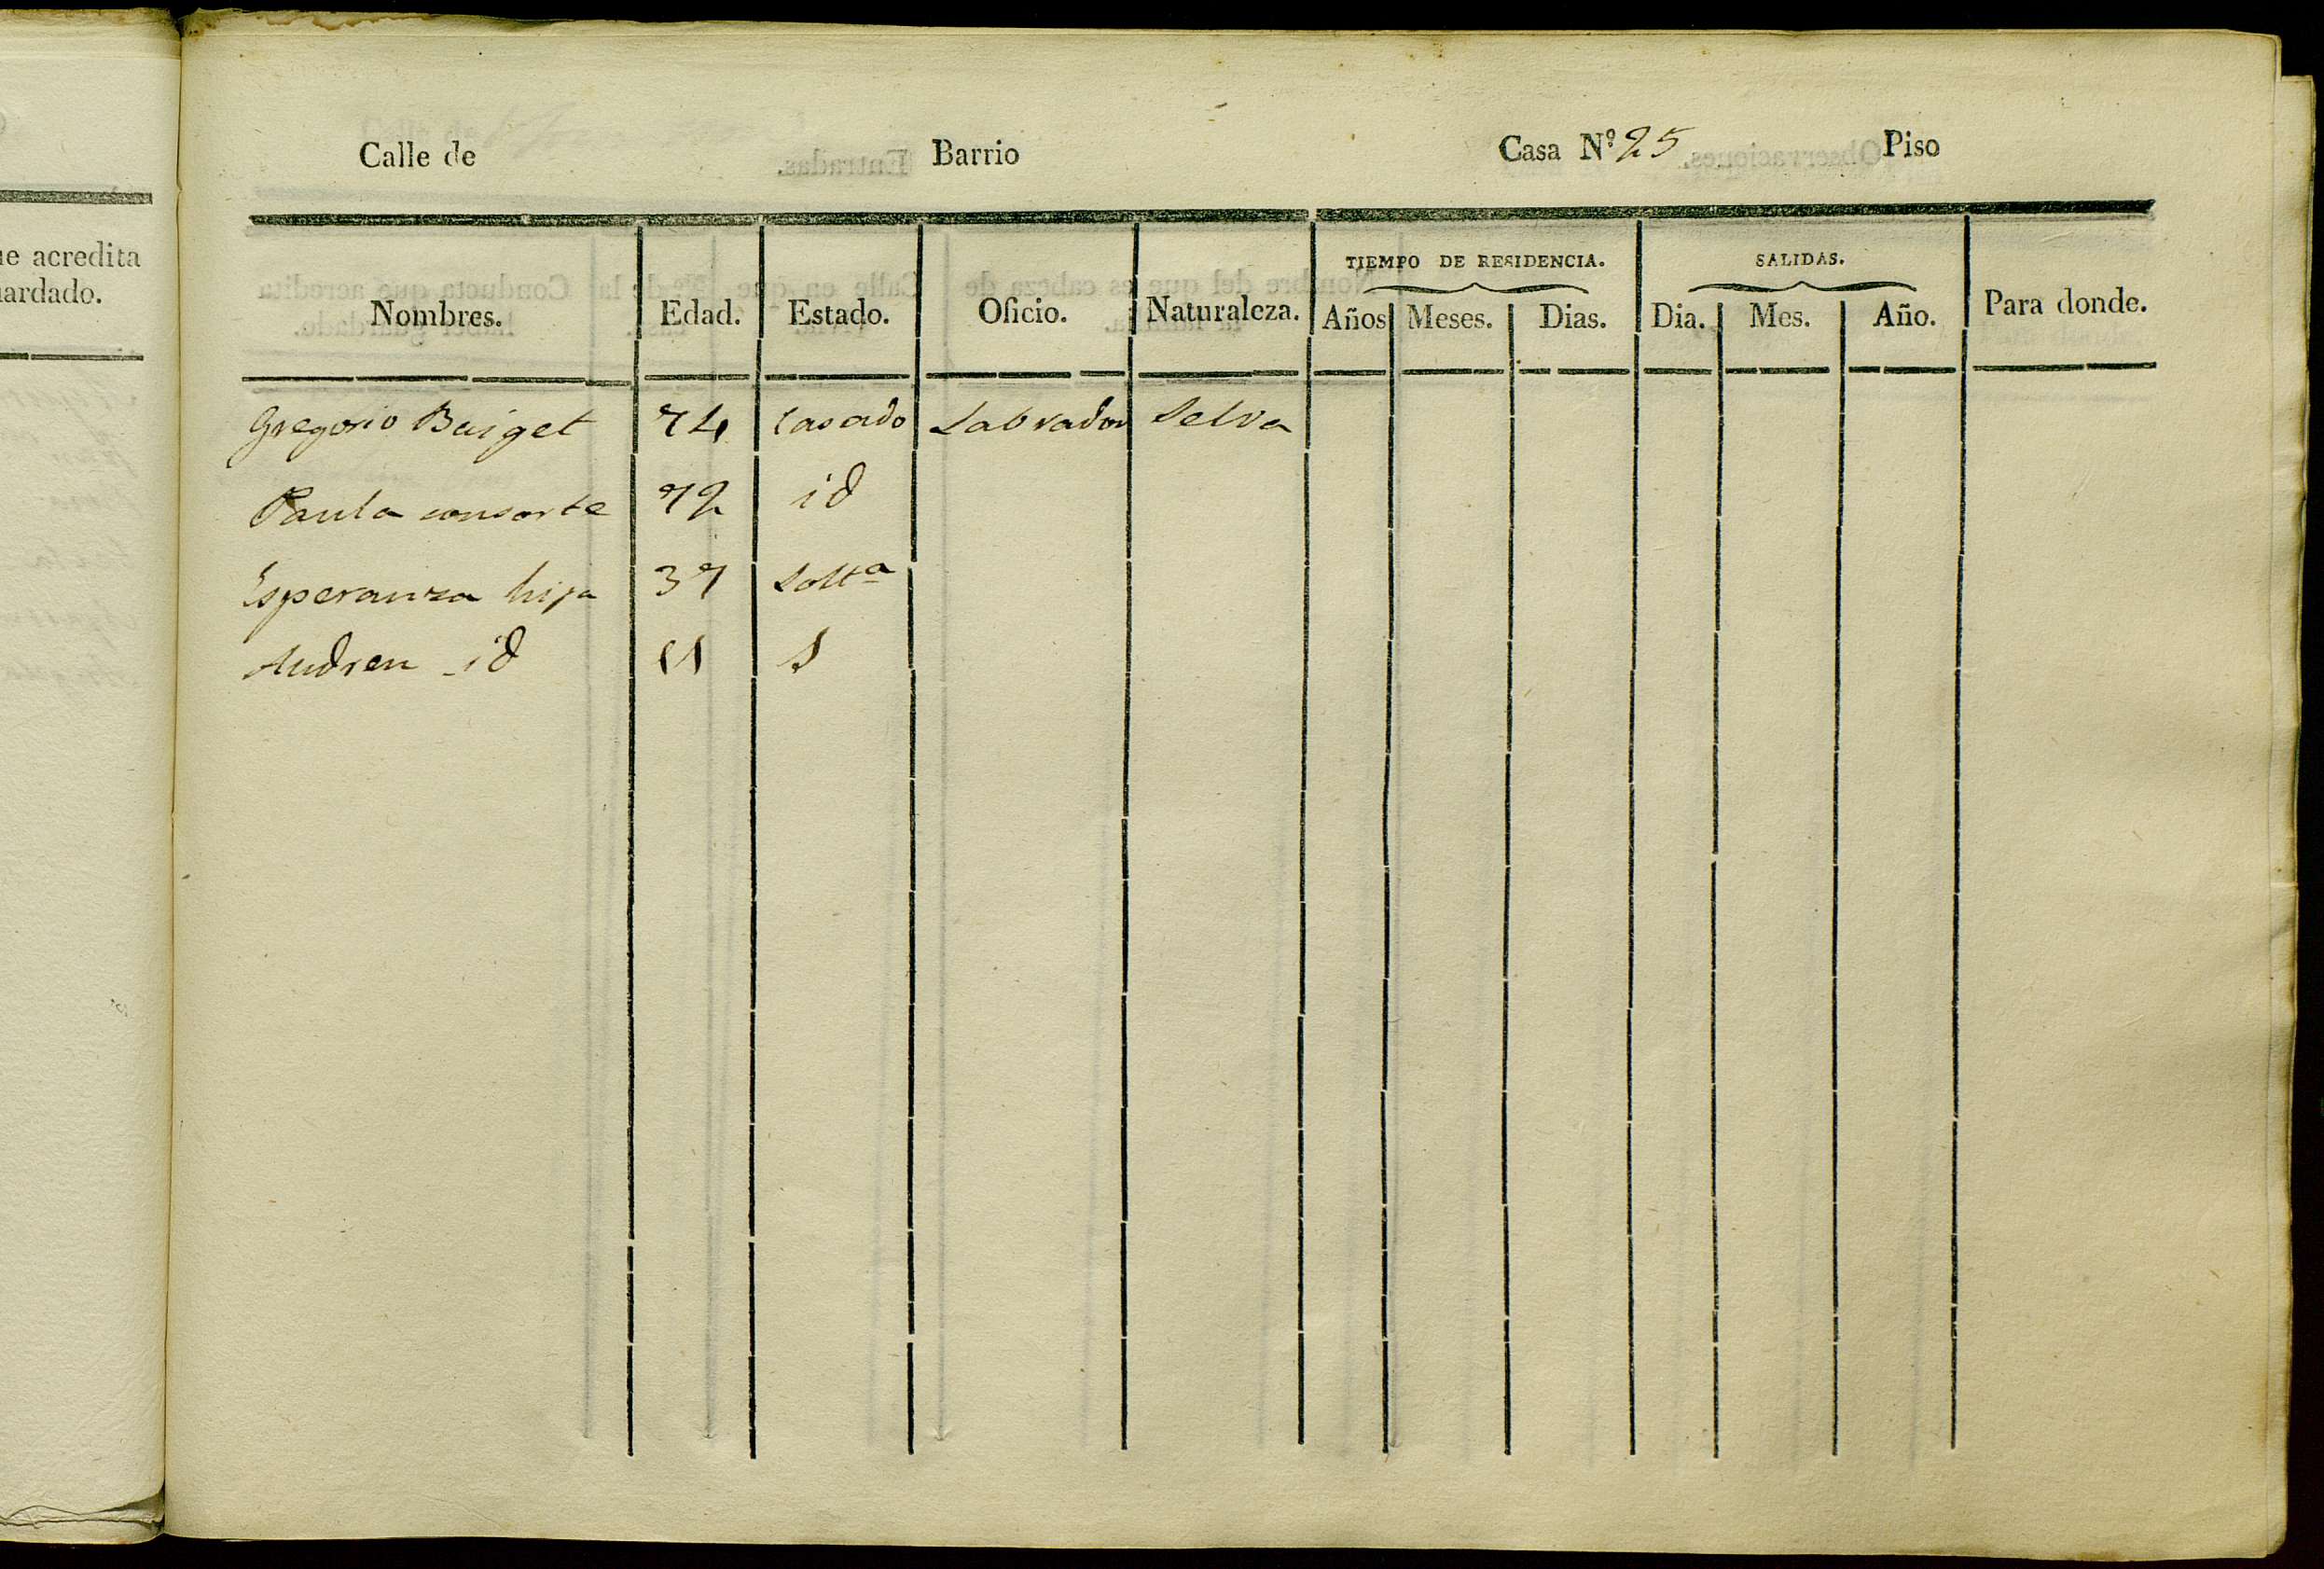 ue acredita
uardado.
Calle de Barrio Casa Nº 25 Piso
TIEMPO DE RESIDENCIA. SALIDAS.
Nombres. Edad. Estado. Oficio. Naturaleza. Años Meses. Dias. Dia. Mes. Año. Para donde.
Gregorio Baiget 74 Casado Labrador Selva
Paula consorte 72 id
Esperanza hija 37 Soltª
Andreu id S